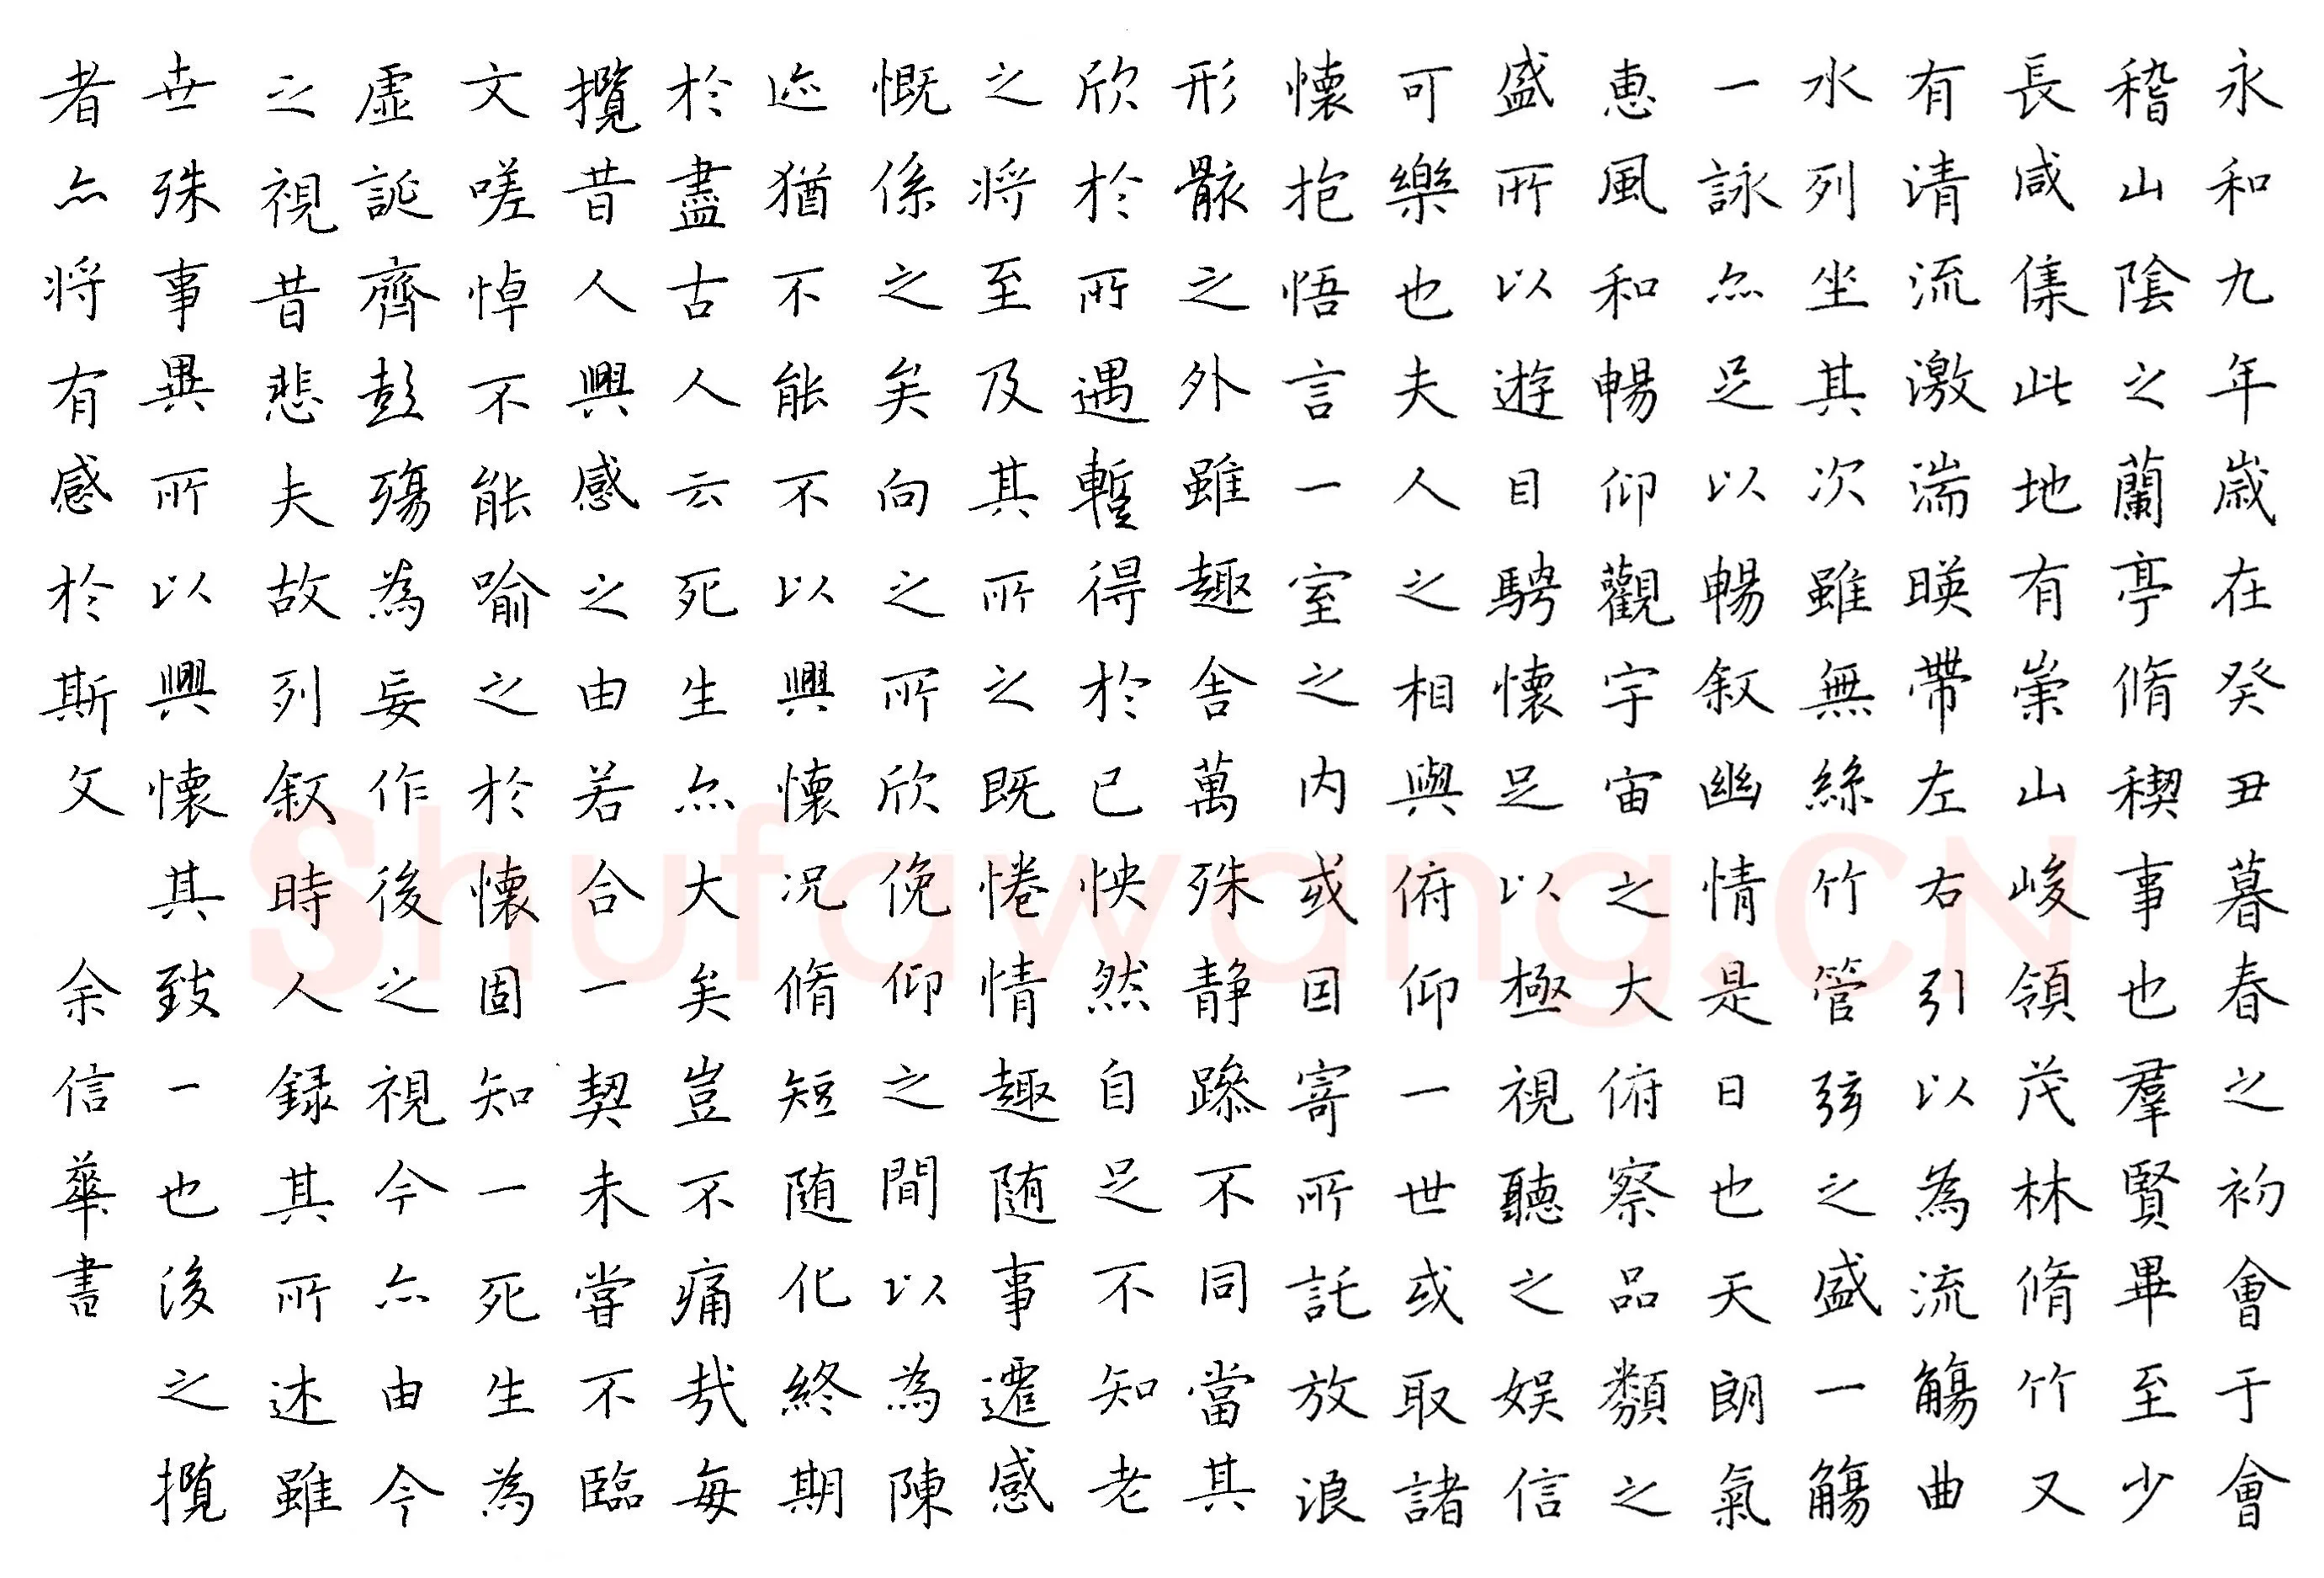 永和九年歲在癸丑暮春之初會于會
稽山陰之蘭亭脩稧事也羣賢畢至少
長咸集此地有崇山峻領茂林脩竹又
有清流激湍暎帶左右引以為流觴曲
水列坐其次雖無絲竹管弦之盛一觴
一詠亦足以暢叙幽情是日也天朗氣
惠風和暢仰觀宇宙之大俯察品類之
盛所以遊目騁懷足以極視聽之娛信
可樂也夫人之相與俯仰一世或取諸
懷抱悟言一室之內或因寄所託放浪
形骸之外雖趣舍萬殊静躁不同當其
欣於所遇暫得於己怏然自足不知老
之將至及其所之既惓情随事遷感
慨係之矣向之所欣俛仰之間以為陳
迹猶不能不以興懷况脩短随化終期
於盡古人云死生亦大矣豈不痛哉每
攬昔人興感之由若合一契未嘗不臨
文嗟悼不能喻之於懷固知一死生為
虛誕齊彭殤為妄作後之視今亦由今
之視昔悲夫故列叙時人録其所述雖
世殊事異所以興懷其致一也後之攬
者亦將有感於斯文 余信華書
Shufawang.CN